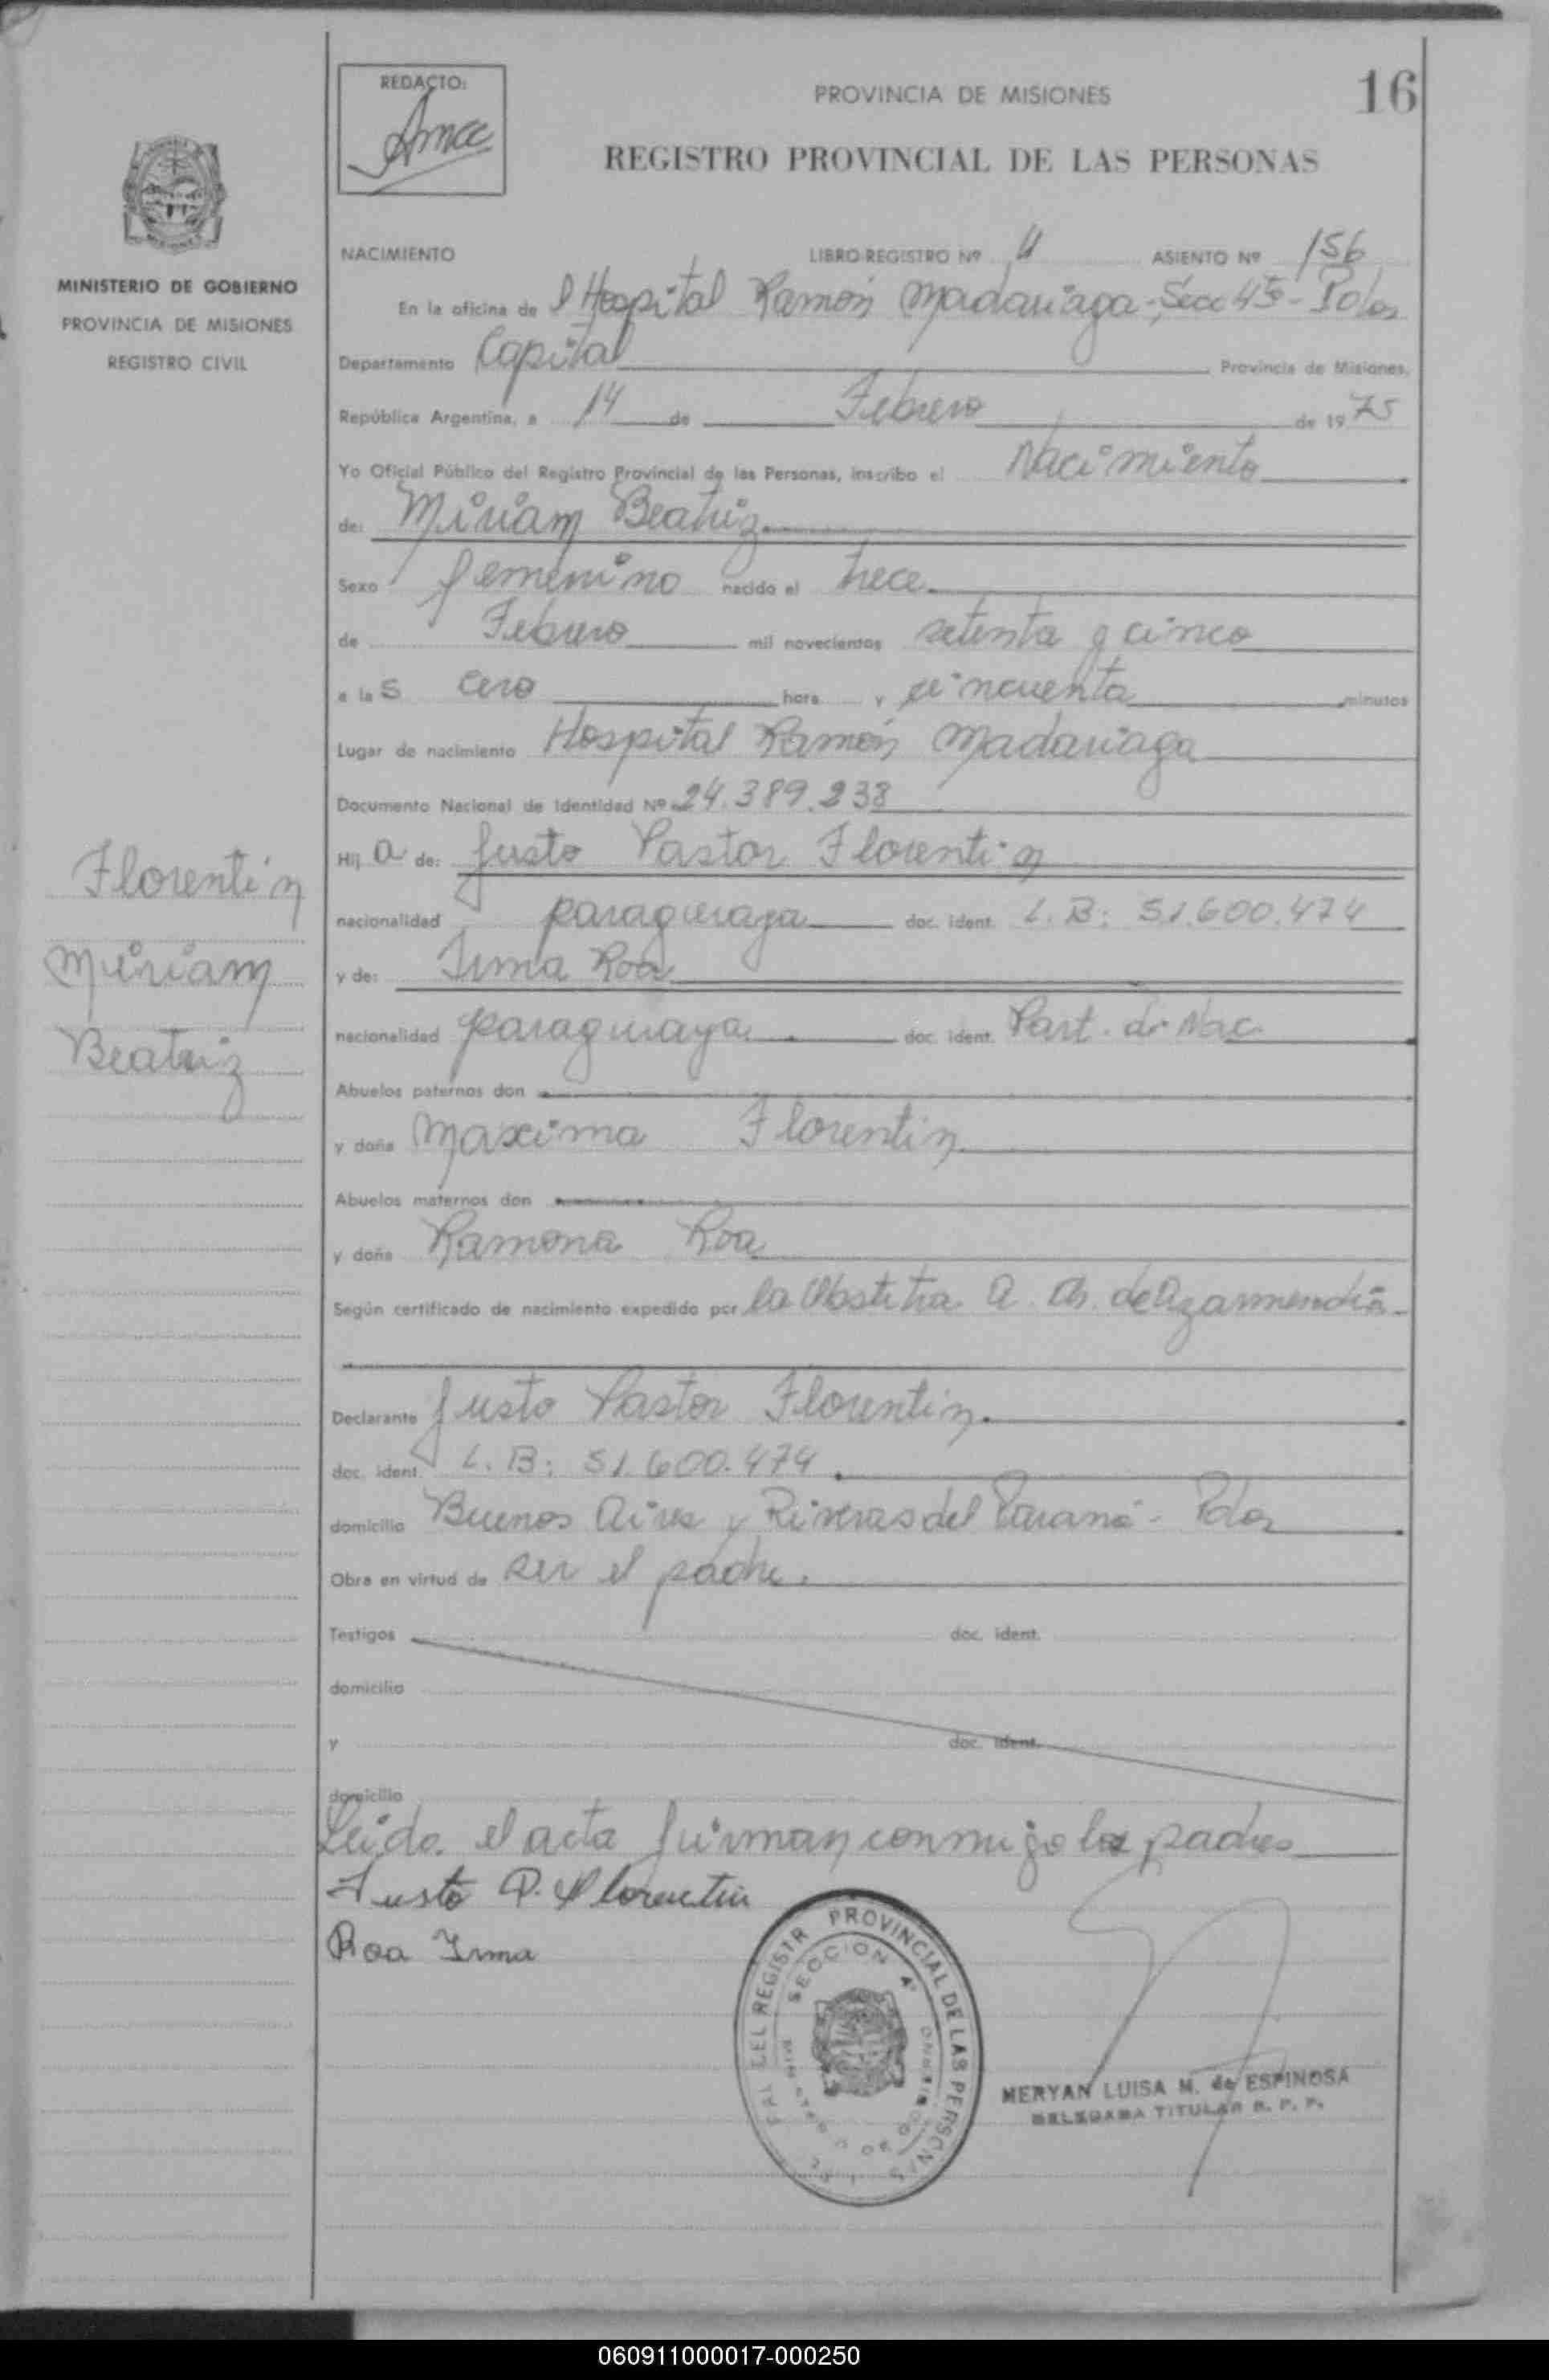 REDACTO:
PROVINCIA DE MISIONES
16
REGISTRO PROVINCIAL DE LAS PERSONAS
MINISTERIO DE GOBIERNO
PROVINCIA DE MISIONES
REGISTRO CIVIL
NACIMIENTO LIBRO-REGISTRO Nº ASIENTO Nº 156
En la oficina de l Hospital Ramón Madariaga - Secc 4ª - Pdas
Departamento Capital Provincia de Misiones,
República Argentina, a 14 de Febrero de 1975
Yo Oficial Público del Registro Provincial de las Personas, inscribo el Nacimiento
de: Miriam Beatriz
Sexo femenino nacido el trece
de Febrero mil novecientos setenta y cinco
a las cero hora y cincuenta minutos
Lugar de nacimiento Hospital Ramón Madariaga
Documento Nacional de Identidad Nº 24.389.238
Hija de: Justo Pastor Florentin
nacionalidad paraguaya doc. ident. L.B: 51.600.474
y de: Irma Roa
nacionalidad paraguaya doc. ident. Part. de Nac.
Abuelos paternos don
y doña Maxima Florentin
Abuelos maternos don
y doña Ramona Roa
Según certificado de nacimiento expedido por la Obstetra A. de Azarmendia
Declarante Justo Pastor Florentin
doc. ident. L.B: 51.600.474
domicilio Buenos Aires y Riveras del Paraná - Pdas
Obra en virtud de ser el padre.
Testigos doc. ident.
domicilio
y doc. ident.
domicilio
Leida el acta firman conmigo los padres
Justo P. Florentin
Roa Irma
Florentin
Miriam
Beatriz
PROVINCIAL DE LAS PERSONAS
SECCION 4ª
MERYAN LUISA M. de ESPINOSA
DELEGADA TITULAR R. P. P.
060911000017-000250